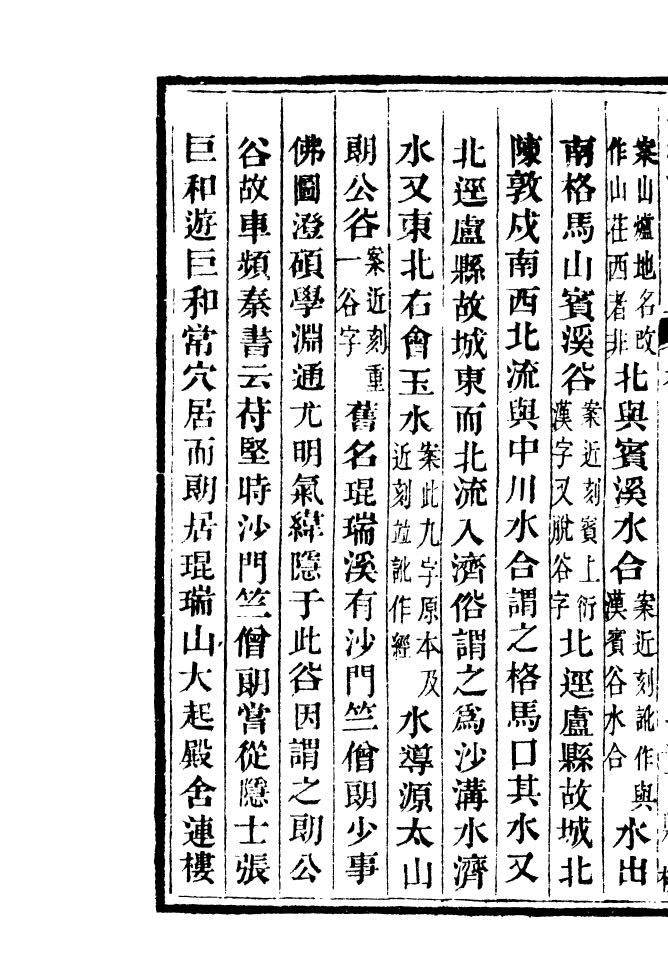 案山爐地名改作山茌西者非北與賓溪水合案近刻訛作與漢賓谷水合水出
南格馬山賓溪谷案近刻賓上衍漢字又脫谷字北逕盧縣故城北
陳敦戍南西北流與中川水合謂之格馬口其水又
北逕盧縣故城東而北流入濟俗謂之爲沙溝水濟
水又東北右會玉水案此九字原本及近刻並訛作經水導源太山
朗公谷案近刻重一谷字舊名琨瑞溪有沙門竺僧朗少事
佛圖澄碩學淵通尤明氣緯隱于此谷因謂之朗公
谷故車頻秦書云苻堅時沙門竺僧朗嘗從隱士張
巨和遊巨和常穴居而朗居琨瑞山大起殿舍連樓